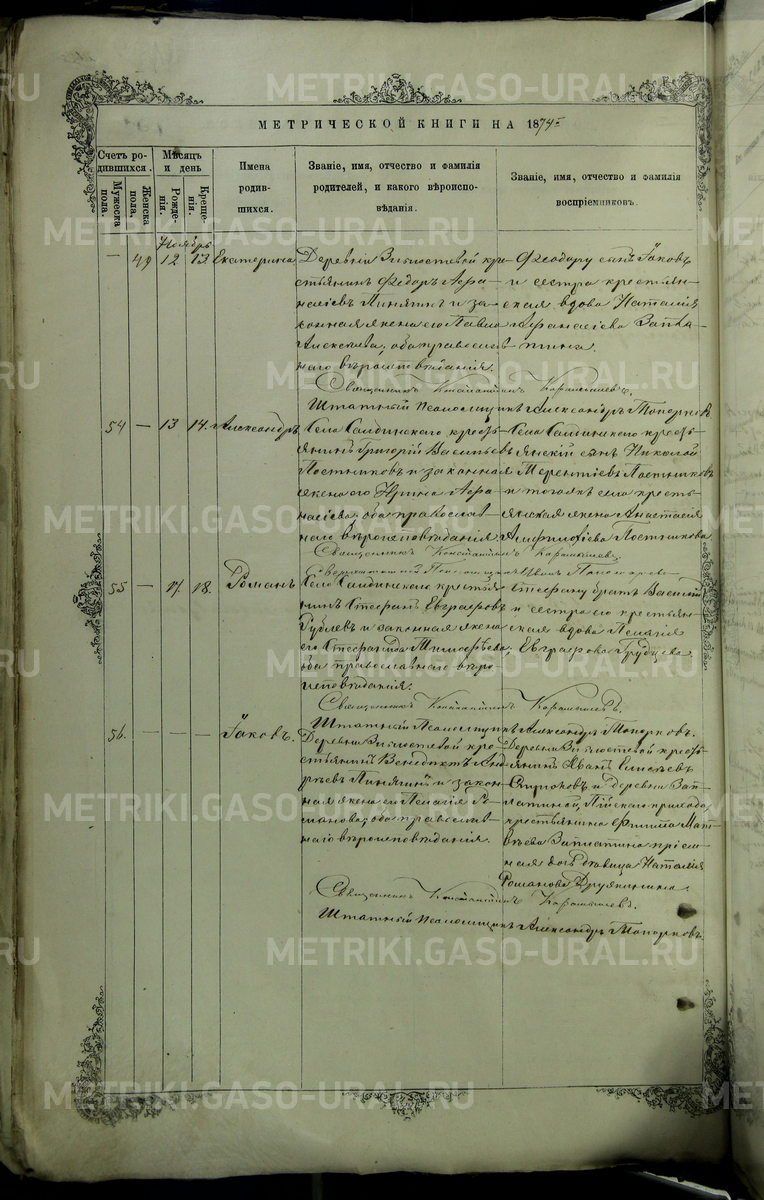 МЕТРИЧЕСКОЙ КНИГИ НА 1874 г.
Счетъ родившихся.
Мужеска пола.
Женска пола.
Мѣсяцъ и день
Рожденія.
Крещенія.
Имена родившихся.
Званіе, имя, отчество и фамилія родителей, и какого вѣроисповѣданія.
Званіе, имя, отчество и фамилія воспріемниковъ.
Ноябрь
— 49 12 13 Екатерина
Деревни кре-
стьянинъ Ѳедоръ Аѳа-
насіевъ Линягинъ и за-
конная жена его Павла
Алексѣева, оба православ-
наго вѣроисповѣданія.
Ѳеодору сынъ Іаковъ
и сестра крестьян-
ская вдова Наталія
Аѳанасіева
Священникъ Константинъ
Штатный Псаломщикъ Александръ Топорковъ
54 — 13 14. Александръ
Села Салдинскаго кресть-
янинъ Григорій Васильевъ
Постниковъ и законная
жена его Ирина Аѳа-
насіева, оба православ-
наго вѣроисповѣданія
Села Салдинскаго кресть-
янскій сынъ Николай
Терентіевъ Постниковъ
и тогоже села кресть-
янская жена Анастасія
Постникова
Священникъ Константинъ
55 — 17. 18. Романъ
Села Салдинскаго крестья-
нинъ Стефанъ Евграфовъ
Рублевъ и законная жена
его Стефанида
оба православнаго вѣро-
исповѣданія.
Стефану братъ Василій
и сестра его крестьян-
ская вдова Пелагія
Евграфова
Священникъ Константинъ
Штатный Псаломщикъ Александръ Топорковъ.
56. — — — Іаковъ.
Деревни кре-
стьянинъ Венедиктъ Анд-
реевъ Линягинъ и закон-
ная жена его Пелагія Ро-
манова, оба православ-
наго вѣроисповѣданія.
Деревни кресть-
янинъ Иванъ Елисѣевъ
и деревни Зап-
латиной, прихода
крестьянина Филиппа Мат-
вѣева Заплатина пріем-
ная дочь дѣвица Наталія
Романова
Священникъ Константинъ
Штатный Псаломщикъ Александръ Топорковъ.
METRIKI.GASO-URAL.RU